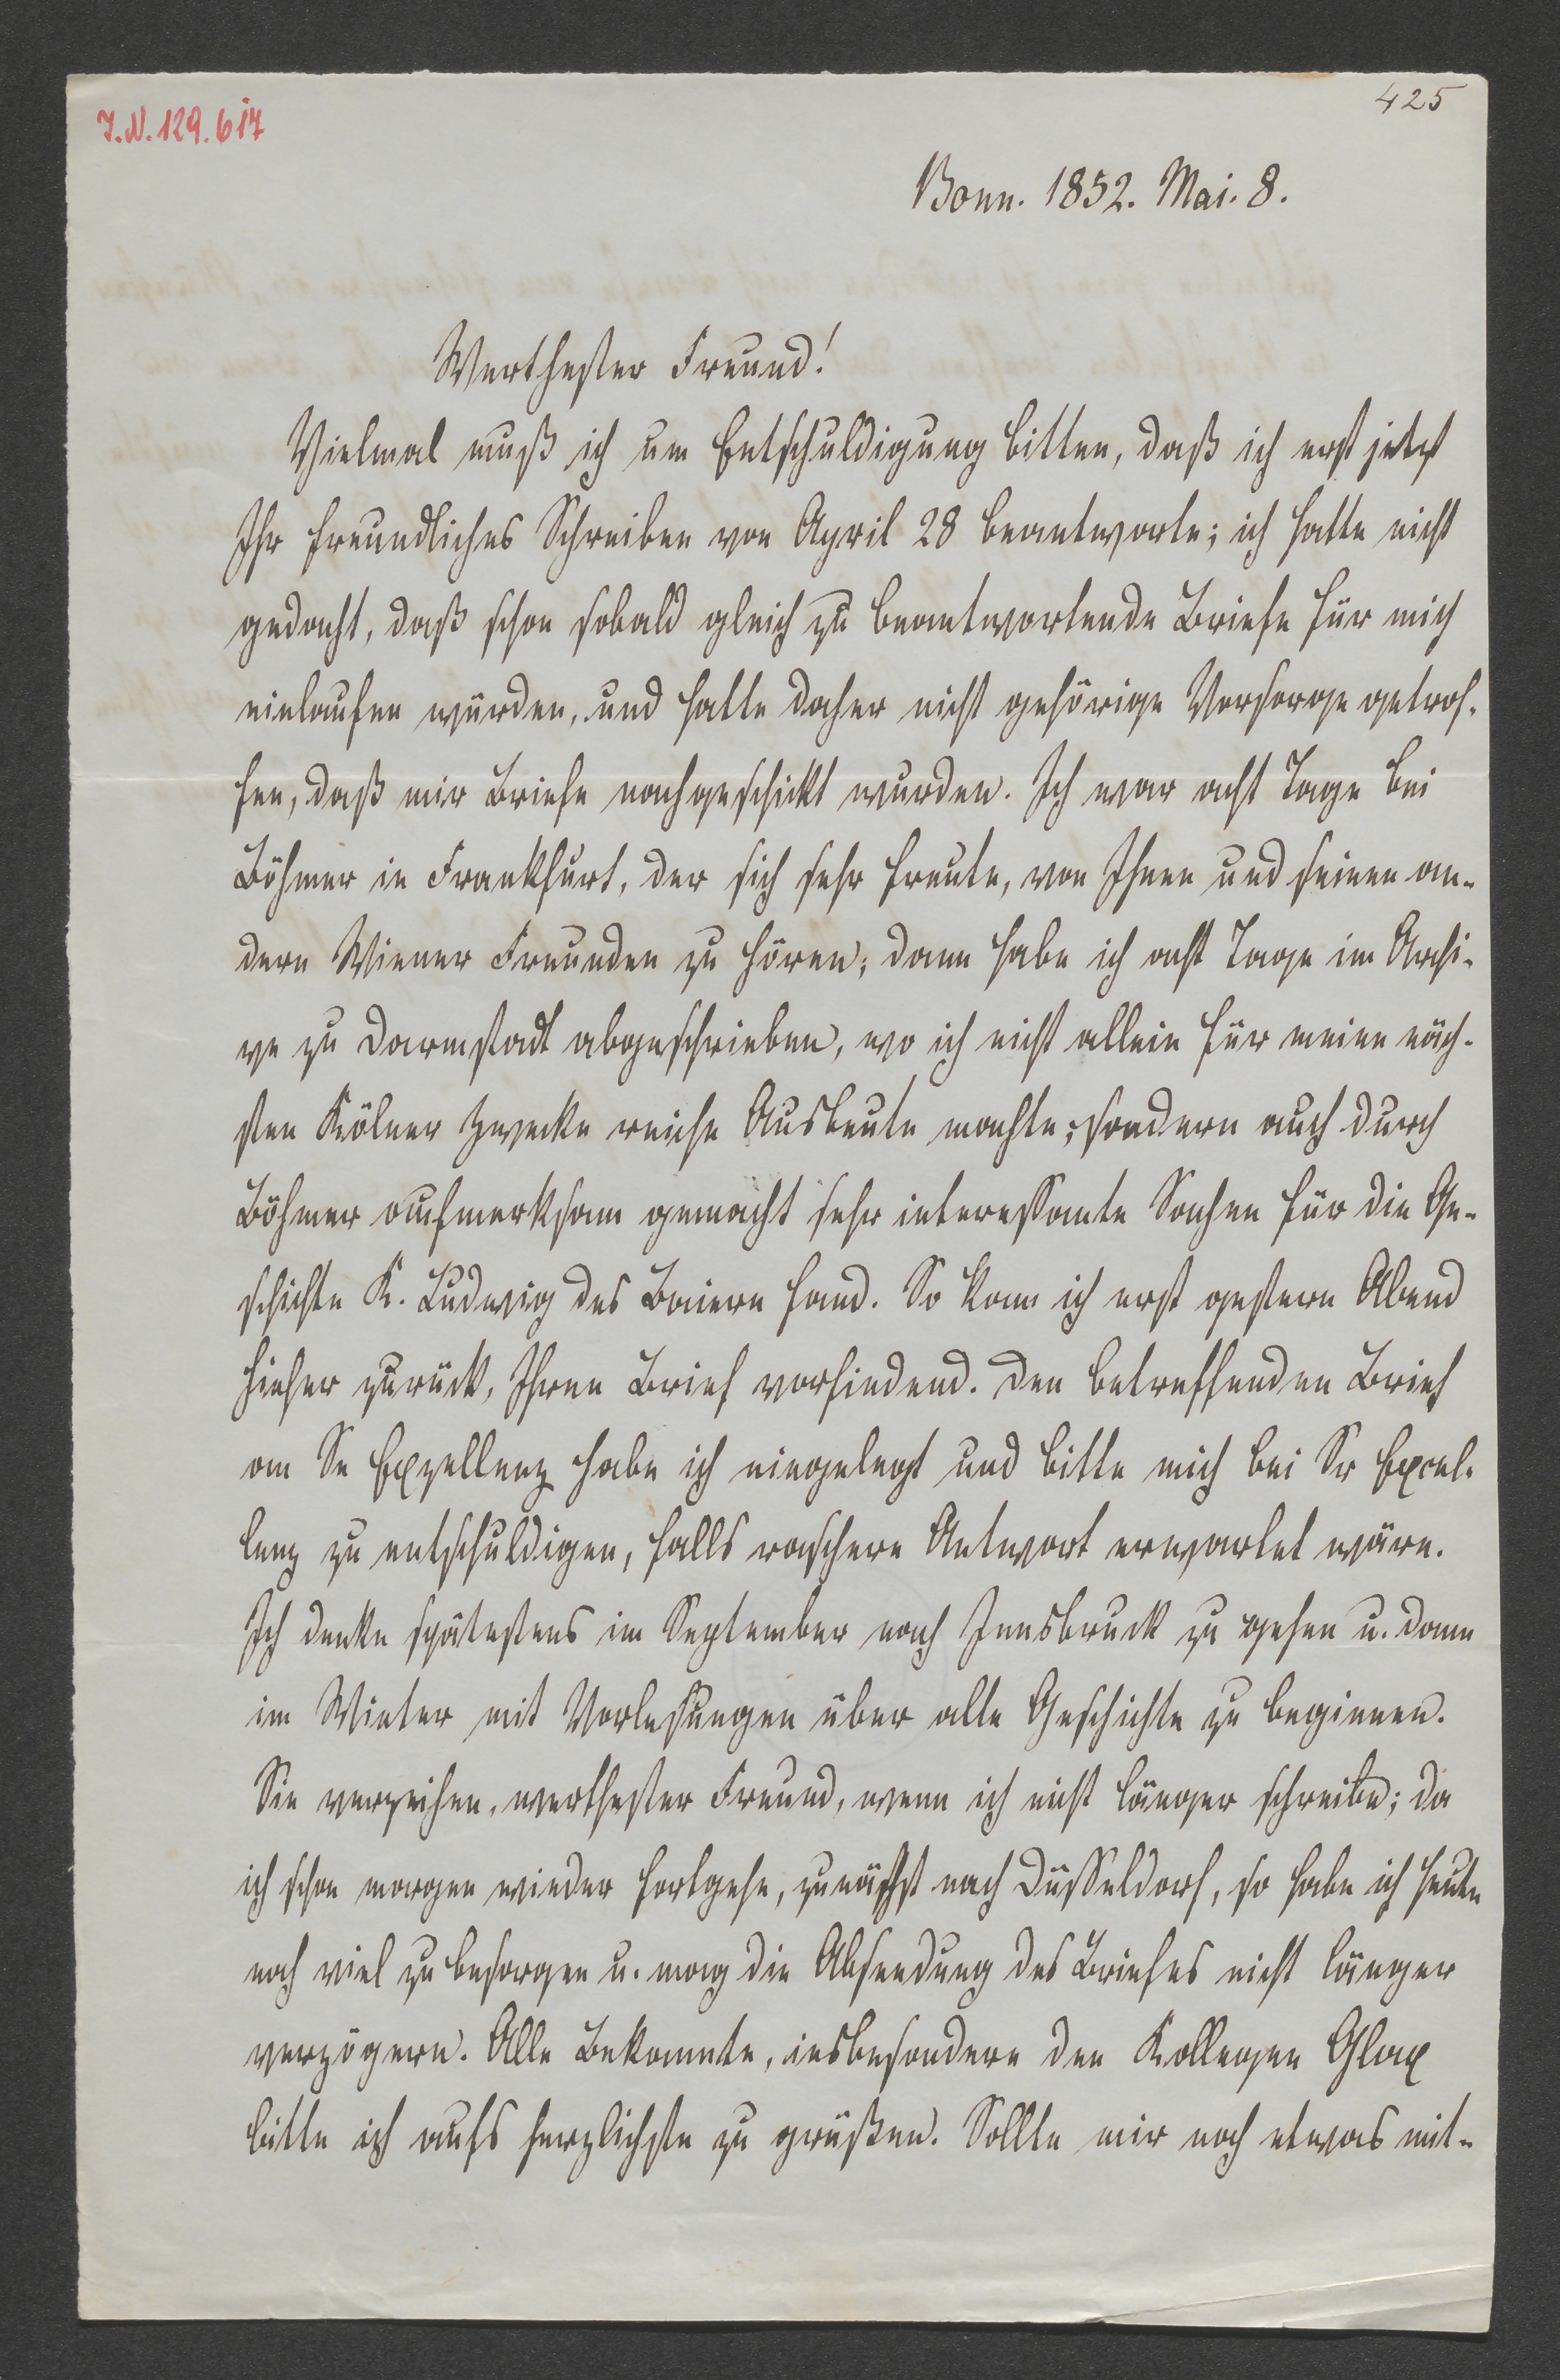 J.N. 129.617
425
Bonn. 1852. Mai. 8.
Werthester Freund!
Vielmal muß ich um Entschuldigung bitten, daß ich erst jetzt
Ihr freundliches Schreiben von April 28 beantworte; ich hatte nicht
gedacht, daß schon sobald gleich zu beantwortende Briefe für mich
einlaufen würden, und hatte daher nicht gehörige Vorsorge getrof-
fen, daß mir Briefe nachgeschickt wurden. Ich war acht Tage bei
Böhmer in Frankfurt, der sich sehr freute, von Ihnen und seinen an-
dern Wiener Freunden zu hören; dann habe ich acht Tage im Archi-
ve zu Darmstadt abgeschrieben, wo ich nicht allein für meine näch-
sten Kölner Zwecke reiche Ausbeute machte, sondern auch durch
Böhmer aufmerksam gemacht sehr interessante Sachen für die Ge-
schichte K. Ludwig des Baiern fand. So kam ich erst gestern Abend
hieher zurück, Ihren Brief vorfindend. Den betreffenden Brief
an Se Exzellenz habe ich eingelegt und bitte mich bei Sr Excel-
lenz zu entschuldigen, falls raschere Antwort erwartet wäre.
Ich denke spätestens im September nach Innsbruck zu gehen u. dann
im Winter mit Vorlesungen über alte Geschichte zu beginnen.
Sie verzeihen, werthester Freund, wenn ich nicht länger schreibe; da
ich schon morgen wieder fortgehe, zunächst nach Düsseldorf, so habe ich heute
noch viel zu besorgen u. mag die Absendung des Briefes nicht länger
verzögern. Alle Bekannte, insbesondere den Kollegen Glax
bitte ich aufs herzlichste zu grüßen. Sollte mir noch etwas mit-